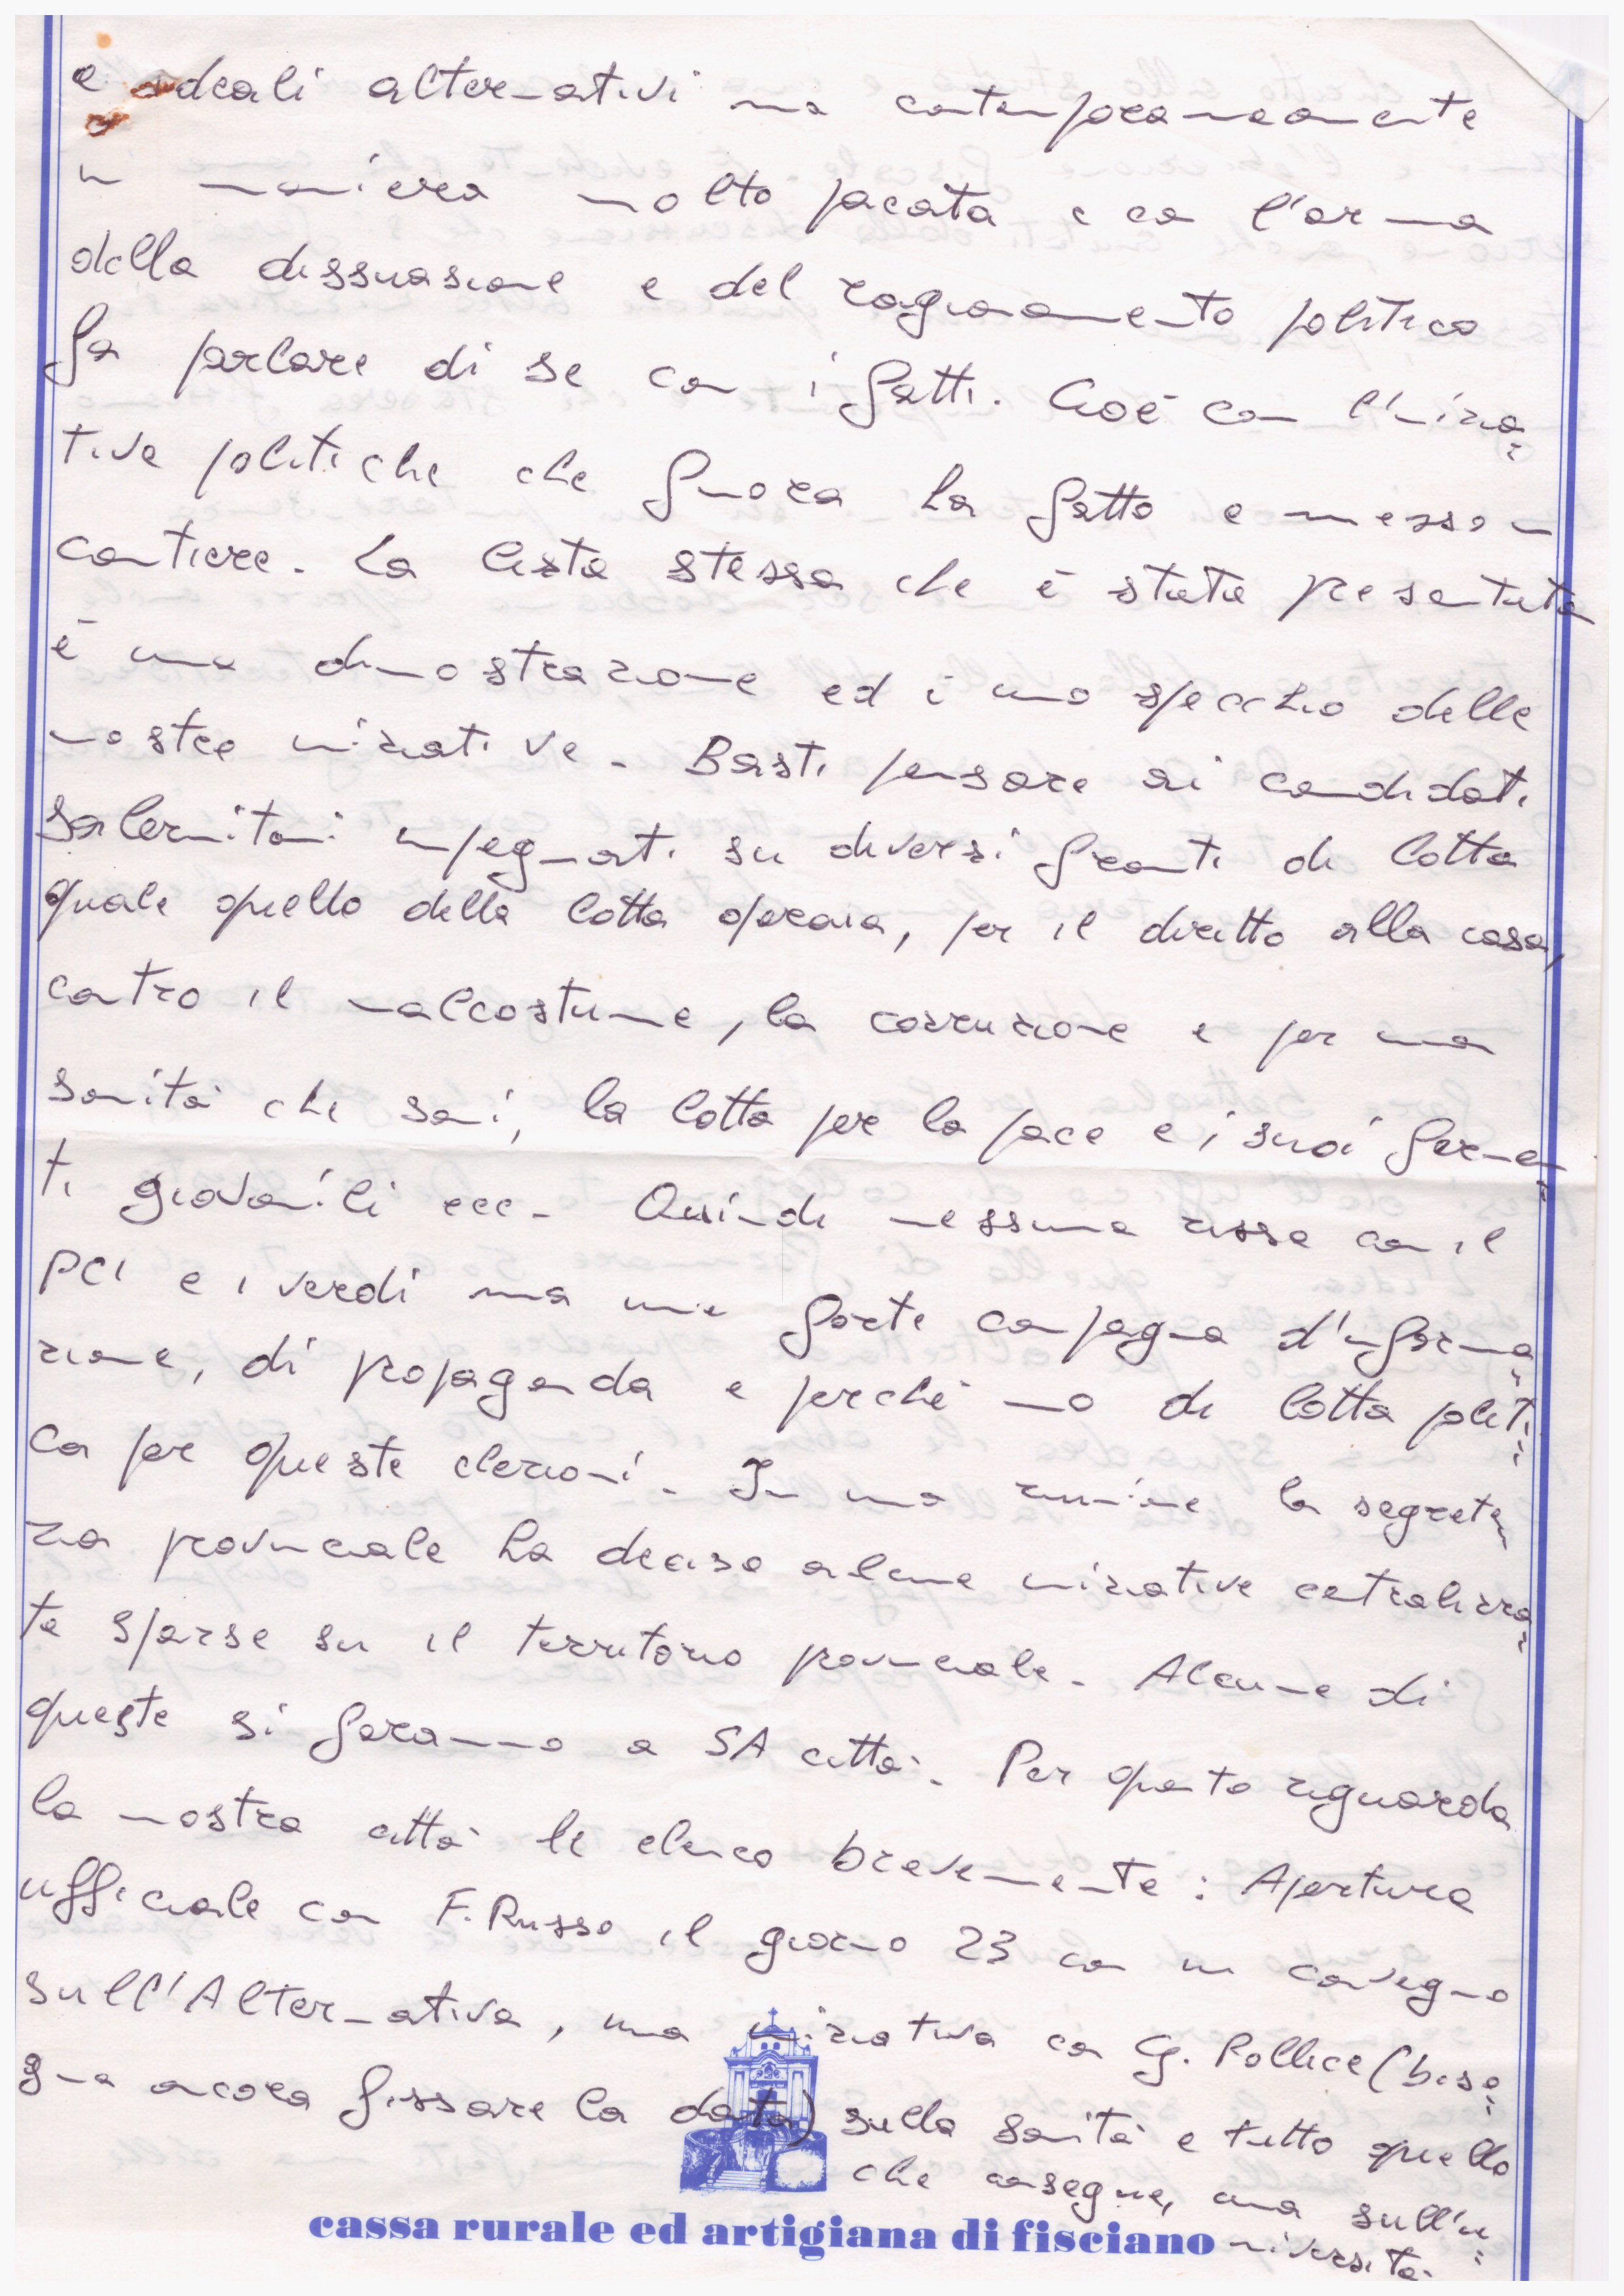 e ideali alternativi ma contemporaneamente
in maniera molto pacata e con l'arma
della dissuasione e del ragionamento politico
fa parlare di se con i fatti. Cioè con l'inizia=
tive politiche che finora ha fatto e messo in
cantiere. La lista stessa che è stata presentata
è una dimostrazione ed è uno specchio delle
nostre iniziative. Basti pensare ai candidati
salernitani impegnati su diversi fronti di lotta
quale quello della lotta operaia, per il diritto alla casa,
contro il malcostume, la corruzione e per una
sanità che sani, la lotta per la pace e i suoi fermen=
ti giovanili ecc. Quindi nessuna rissa con il
PCI e i verdi ma una forte campagna d'informa=
zione, di propaganda e perché no di lotta politi=
ca per queste elezioni. In una riunione la segrete=
ria provinciale ha deciso alcune iniziative centralizza=
te sparse su il territorio provinciale. Alcune di
queste si faranno a SA città. Per quanto riguarda
la nostra città le elenco brevemente: Apertura
ufficiale con F. Russo il giorno 23 con un convegno
sull'Alternativa, una iniziativa con G. Pollice (biso=
gna ancora fissare la data) sulla sanità e tutto quello
che consegue, una sull'u=
niversità.
cassa rurale ed artigiana di fisciano